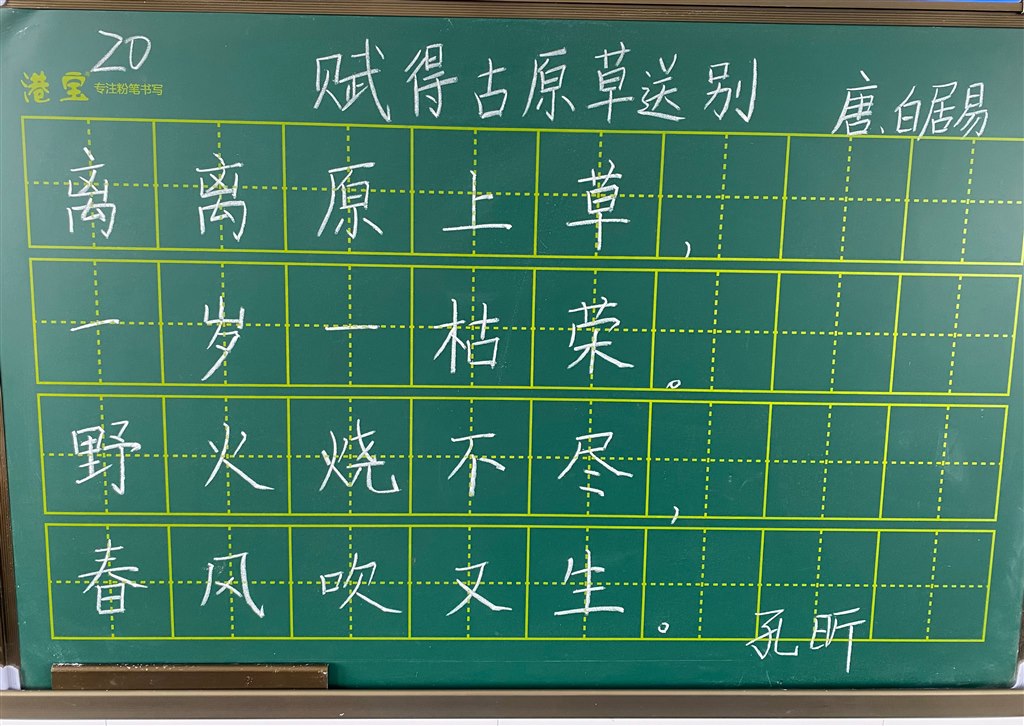 20
港宝
专注粉笔书写
赋得古原草送别
唐、白居易
离离原上草,
一岁一枯荣。
野火烧不尽,
春风吹又生。
孔昕